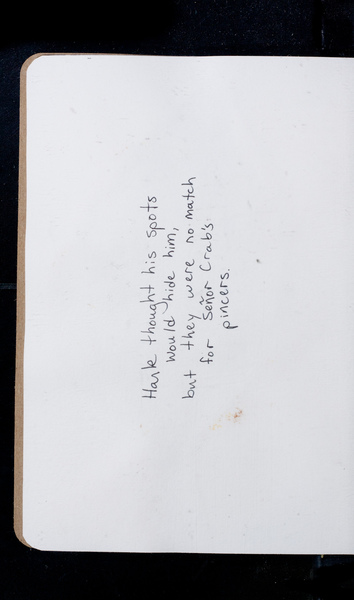 Hark thought his spots
would hide him,
but they were no match
for Señor Crab's
pincers.